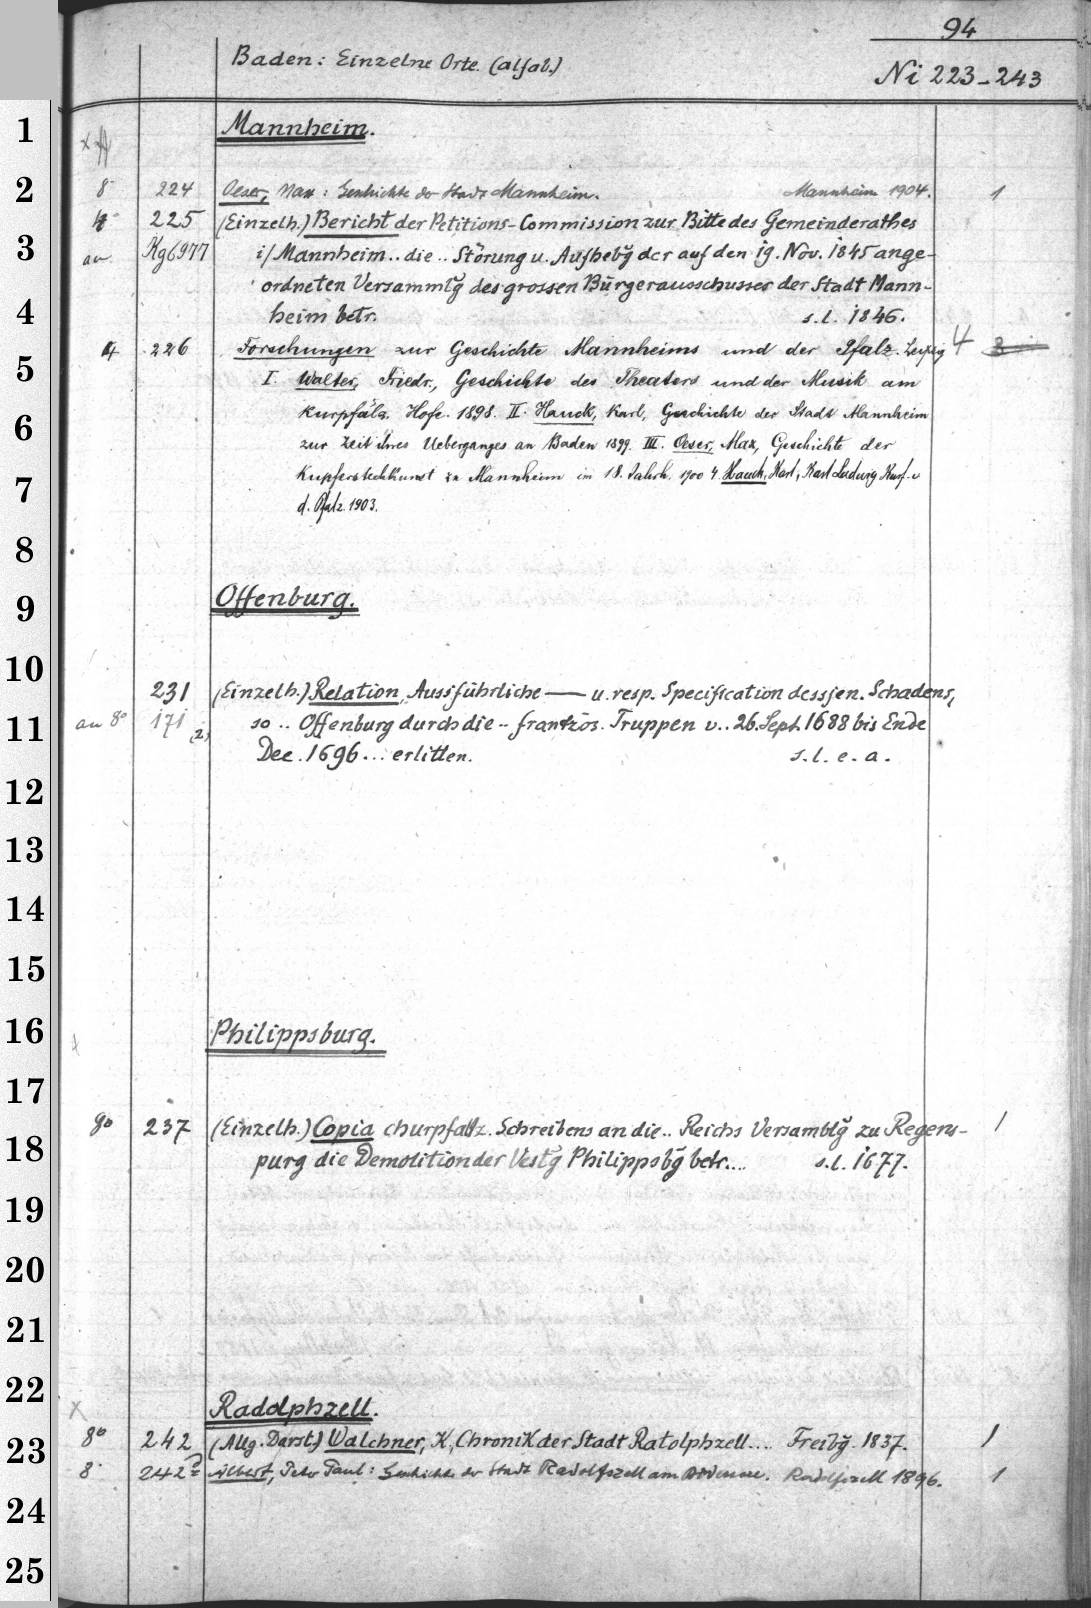 94
Baden: Einzelne Orte. (alfab.)
Ni 223-243
1
Mannheim.
2
8° 224 Oeser, Max: Geschichte der Stadt Mannheim. Mannheim 1904. 1
225 (Einzelh.) Bericht der Petitions-Commission zur Bitte des Gemeinderathes
3
an Kg6977 i/Mannheim.. die.. Störung u. Aufhebg̃ der auf den 19. Nov. 1845 ange-
ordneten Versammlg̃ des grossen Bürgerausschusses der Stadt Mann-
4
heim betr. s.l. 1846.
4 226 Forschungen zur Geschichte Mannheims und der Pfalz. Leipzig 4 3
5
I. Walter, Friedr., Geschichte des Theaters und der Musik am
kurpfälz. Hofe. 1898. II. Hauck, Karl, Geschichte der Stadt Mannheim
6
zur Zeit ihres Ueberganges an Baden 1899. III. Oeser, Max, Geschichte der
7
Kupferstechkunst zu Mannheim im 18. Jahrh. 1900 4. Hauck, Karl, Karl Ludwig Kurf. v
d. Pfalz. 1903.
8
9
Offenburg.
10
231 (Einzelh.) Relation, Aussführliche — u. resp. Specification dessjen. Schadens,
11
an 8° 171 (2) so .. Offenburg durch die .. frantzös. Truppen v.. 26. Sept. 1688 bis Ende
Dec. 1696... erlitten. s. l. e. a.
12
13
14
15
16
Philippsburg.
17
8° 237 (Einzelh.) Copia churpfaltz. Schreibens an die.. Reichs Versamblg̃ zu Regens- 1
18
purg die Demolition der Vestg̃ Philippsbg̃ betr.... s.l. 1677.
19
20
21
22
Radolphzell.
23
8° 242 (Allg. Darst.) Walchner, K, Chronik der Stadt Ratolphzell.... Freibg̃. 1837. 1
8° 242a Albert, Peter Paul: Geschichte der Stadt Radolfszell am Bodensee. Radolfszell 1896. 1
24
25